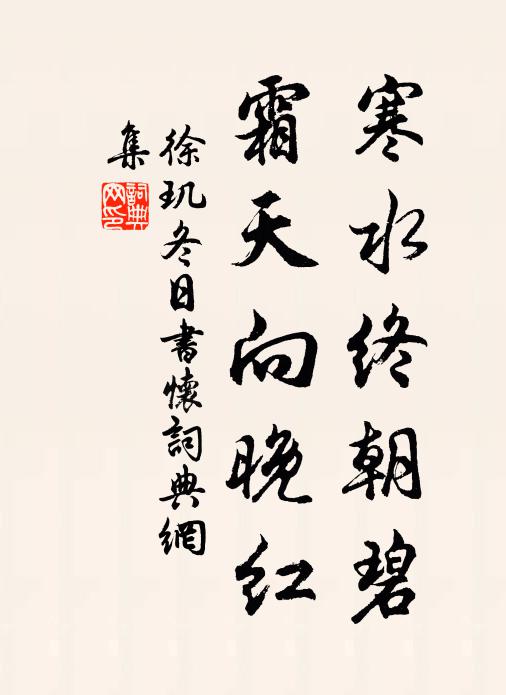 寒水终朝碧
霜天向晚红
徐玑冬日书怀词典網
集
詞典
网印